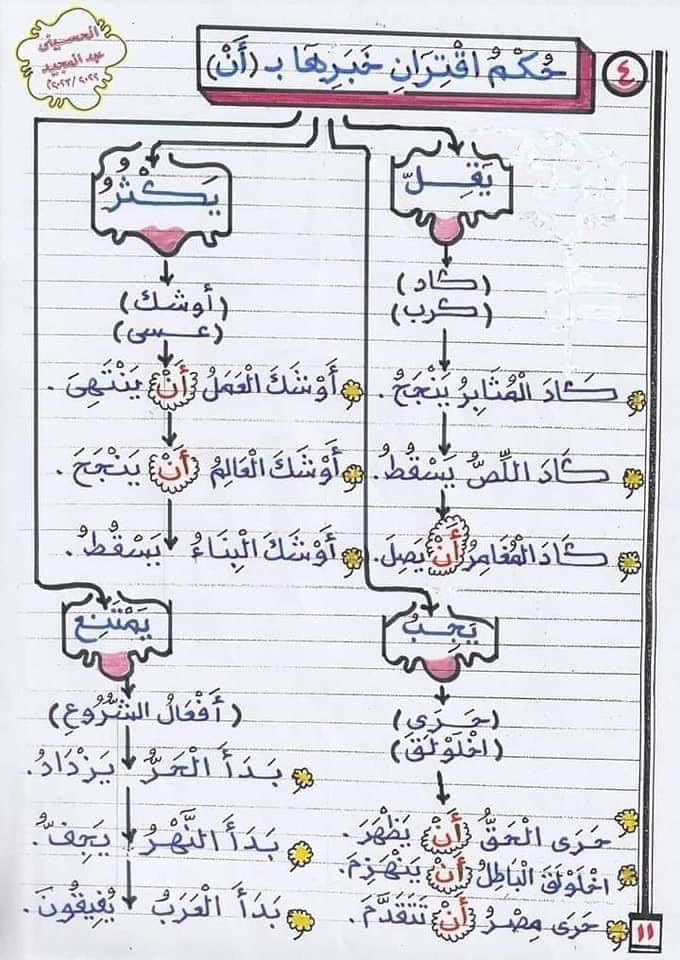 الحسينى
عبد المجيد
٢٠٢٢ /٢٠٢٣م
٤
حُكْمُ اقْتِرَانِ خَبَرِهَا بـ (أَنْ)
يَقِلّ
(كاد)
(كرب)
كَادَ الْمُثَابِرُ يَنْجَحُ.
كَادَ اللِّصُّ يَسْقُطُ.
كَادَ الْمُغَامِرُ أَنْ يَصِلَ.
يَكْثُرُ
(أوشك)
(عسى)
أَوْشَكَ الْعَمَلُ أَنْ يَنْتَهِىَ.
أَوْشَكَ الْعَالِمُ أَنْ يَنْجَحَ.
أَوْشَكَ الْبِنَاءُ يَسْقُطُ.
يَجِبُ
(حَرَى)
(اخْلَوْلَقَ)
حَرَى الْحَقُّ أَنْ يَظْهَرَ.
اخْلَوْلَقَ الْبَاطِلُ أَنْ يَنْهَزِمَ.
حَرَى مِصْرُ أَنْ تَتَقَدَّمَ.
يَمْتَنِع
(أَفْعَالُ الشُّرُوعِ)
بَدَأَ الْحَرُّ يَزْدَادُ.
بَدَأَ النَّهْرُ يَجِفُّ.
بَدَأَ الْعَرَبُ يُفِيقُونَ.
١١